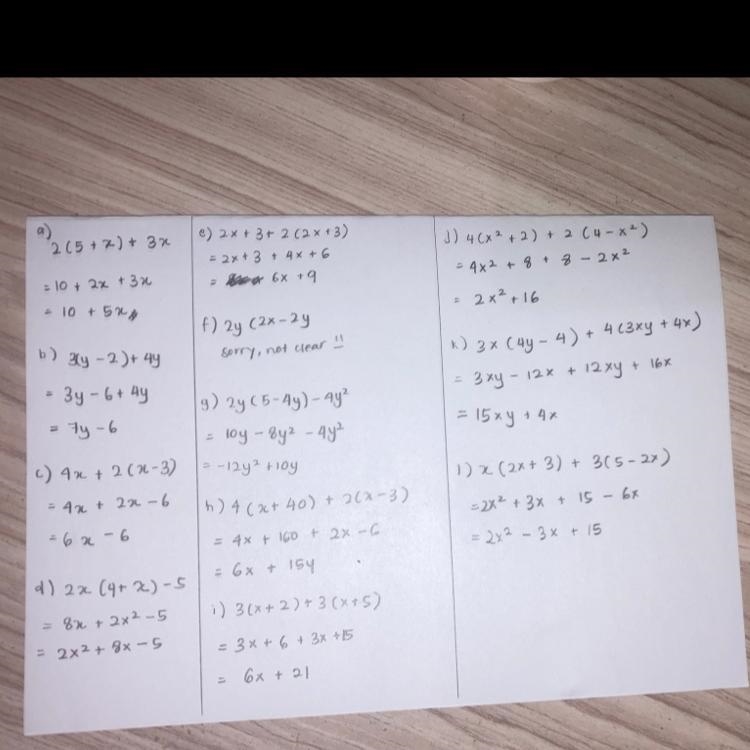 a)
2(5 + x) + 3x
= 10 + 2x + 3x
= 10 + 5x //
b) 3(y - 2) + 4y
= 3y - 6 + 4y
= 7y - 6
c) 4x + 2(x - 3)
= 4x + 2x - 6
= 6x - 6
d) 2x (4 + x) - 5
= 8x + 2x² - 5
= 2x² + 8x - 5
e) 2x + 3 + 2(2x + 3)
= 2x + 3 + 4x + 6
= 6x + 9
f) 2y (2x - 2y
sorry, not clear !!
g) 2y (5 - 4y) - 4y²
= 10y - 8y² - 4y²
= -12y² + 10y
h) 4(x + 40) + 2(x - 3)
= 4x + 160 + 2x - 6
= 6x + 154
i) 3(x + 2) + 3(x + 5)
= 3x + 6 + 3x + 15
= 6x + 21
j) 4(x² + 2) + 2(4 - x²)
= 4x² + 8 + 8 - 2x²
= 2x² + 16
k) 3x (4y - 4) + 4(3xy + 4x)
= 3xy - 12x + 12xy + 16x
= 15xy + 4x
l) x(2x + 3) + 3(5 - 2x)
= 2x² + 3x + 15 - 6x
= 2x² - 3x + 15